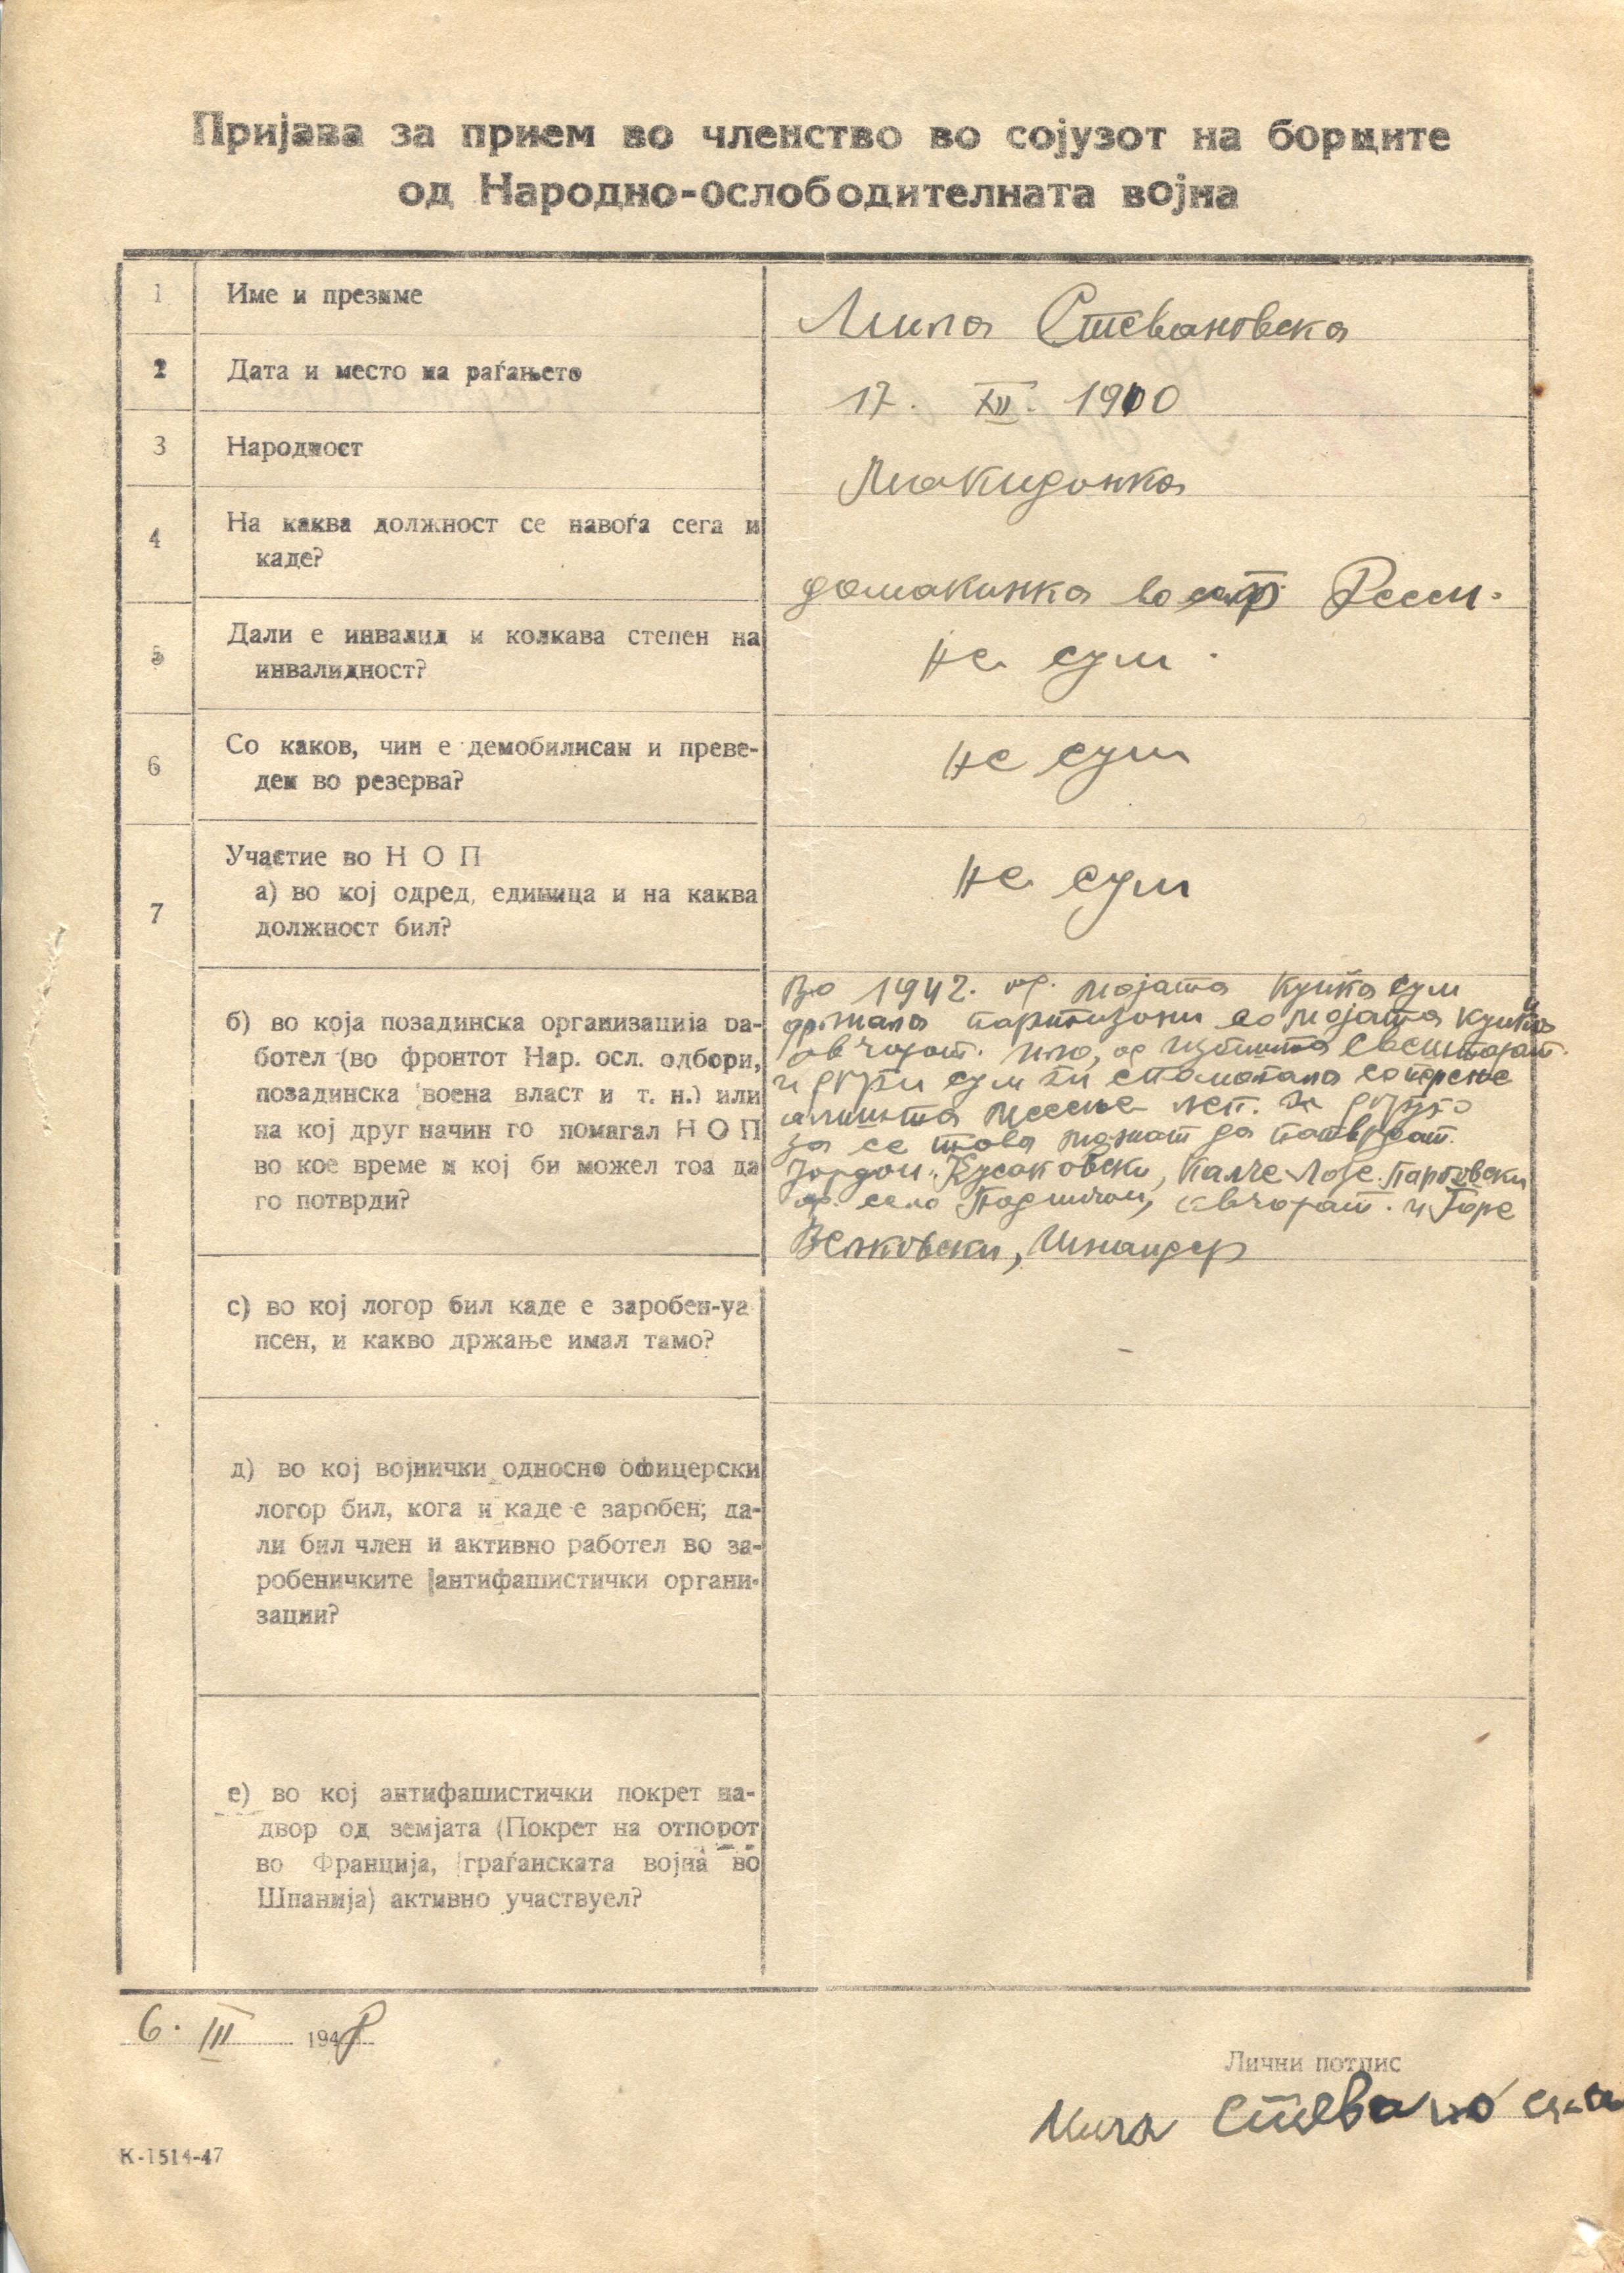 Пријава за прием во членство во сојузот на борците
од Народно-ослободителната војна
1 Име и презиме
Мила Стевановска
2 Дата и место на раѓањето
17. XII. 1900
3 Народност
Макидонка
4 На каква должност се навоѓа сега и
каде?
домакинка во Ресен.
5 Дали е инвалид и колкава степен на
инвалидност?
не сум.
6 Со каков, чин е демобилисан и преве-
ден во резерва?
не сум
7 Участие во Н О П
а) во кој одред, единица и на каква
должност бил?
не сум
б) во која позадинска организација ра-
ботел (во фронтот Нар. осл. одбори,
позадинска воена власт и т. н.) или
на кој друг начин го помагал Н О П
во кое време и кој би можел тоа да
го потврди?
Во 1942. од. мојата куќа сум
држала партизани во мојата куќа
и други сум ги спомогала со
месење леп. за друго
за се товаможат да потврдат.
Јордан
од. село и Ѓоре
Велковски,
с) во кој логор бил каде е заробен-уа
псен, и какво држање имал тамо?
-
д) во кој војнички односно официрски
логор бил, кога и каде е заробен; да-
ли бил член и активно работел во за-
робеничките антифашистички органи-
зации?
е) во кој антифашистички покрет на-
двор од земјата (Покрет на отпорот
во Франција, граѓанската војна во
Шпанија) активно участвуел?
6. III 1948
Лични потпис
Мила Стевановска
К-1514-47